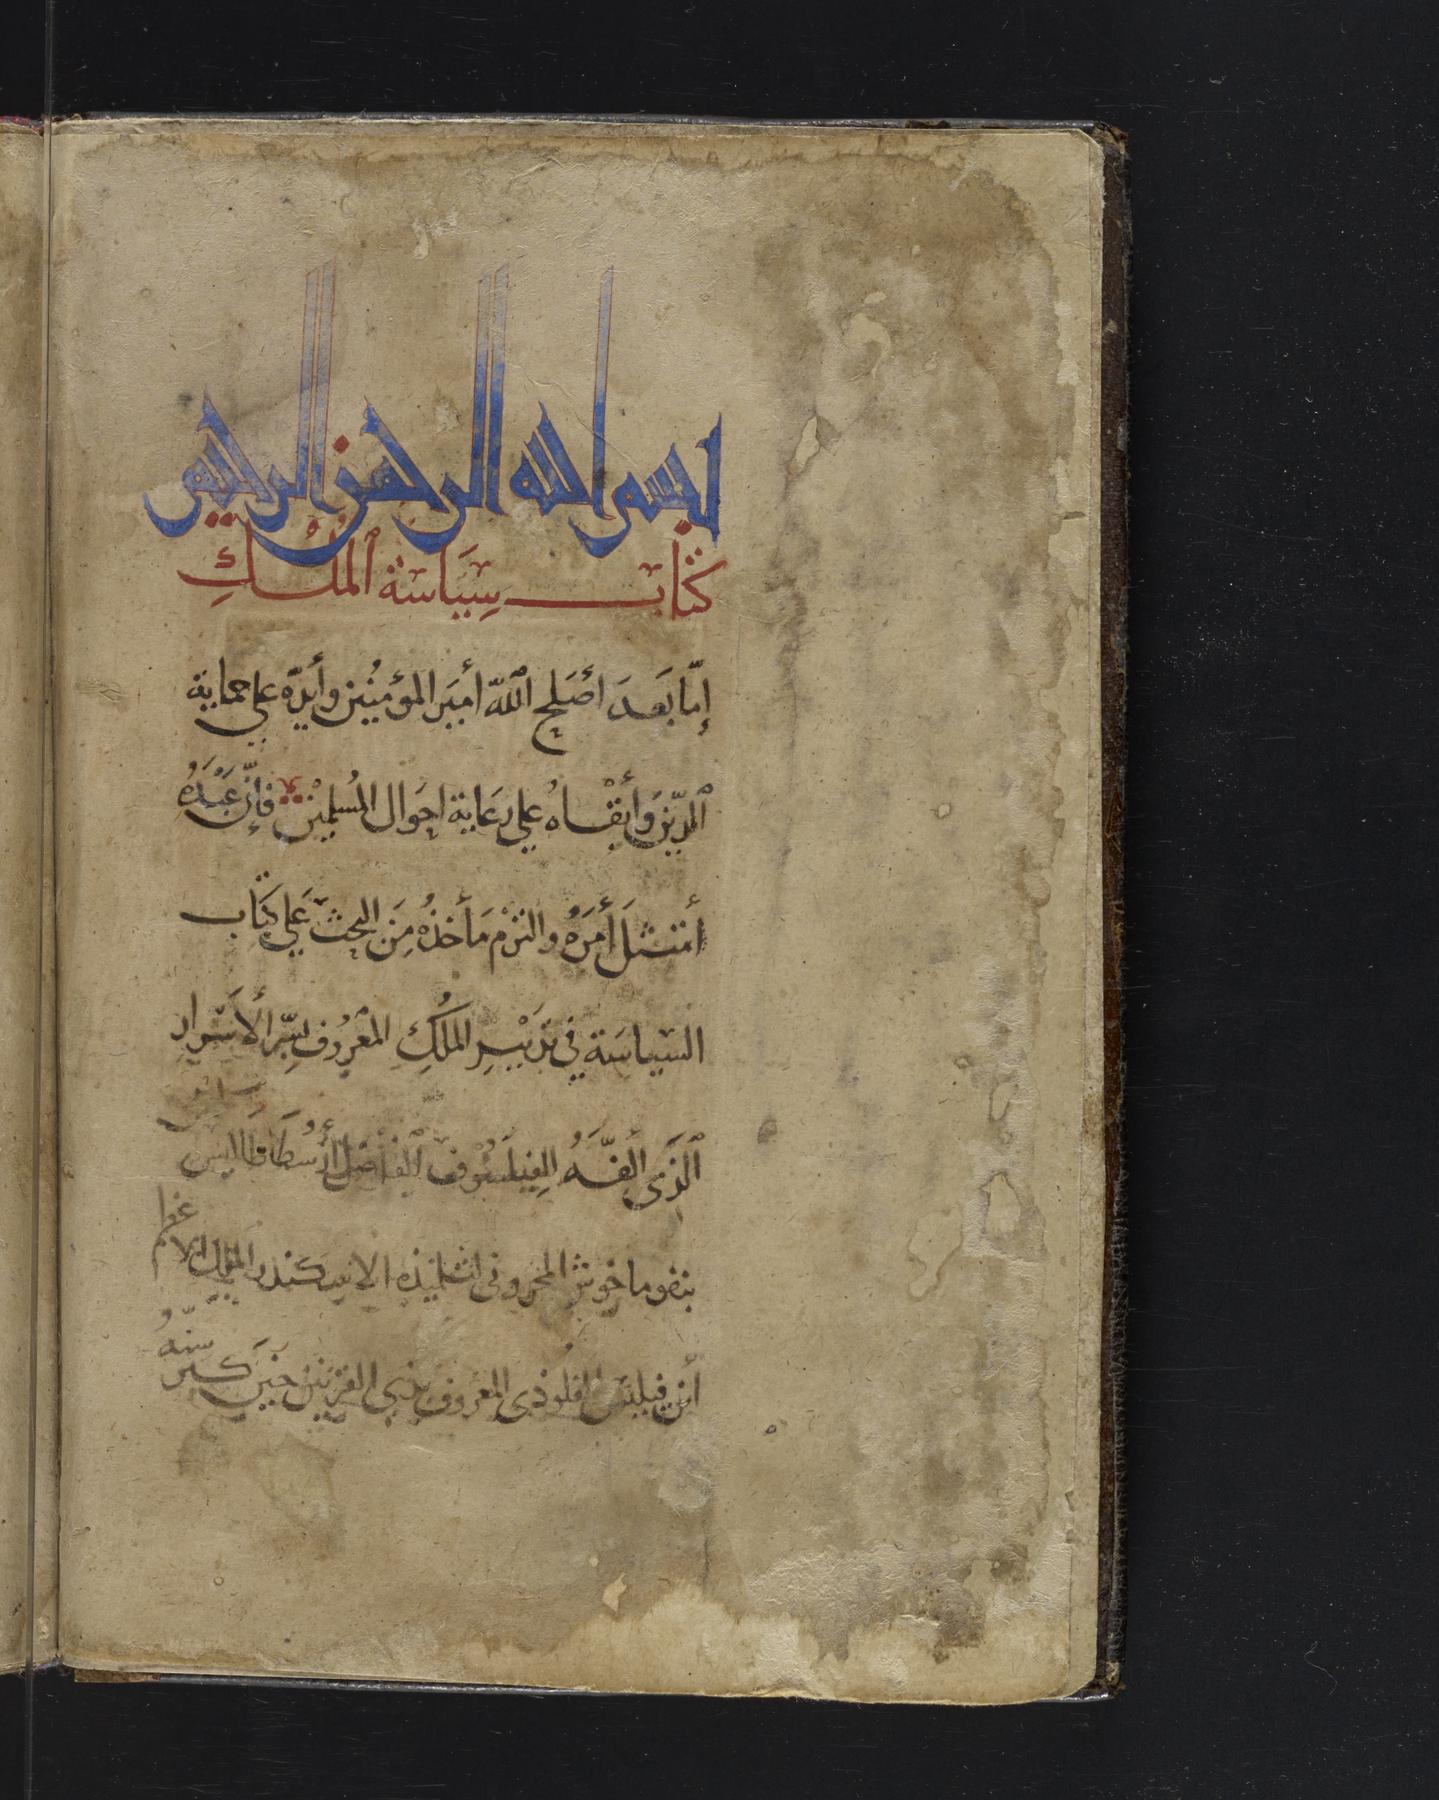 بسم الله الرحمن الرحيم
كتاب سياسة الملك
إمّا بَعد أصلح الله أمير المؤمنين وأيدّه على حماية
الدّين وأبقاه على رعاية احوال المسلمين فإنّ عَبْدَهُ
أمتثلَ أمرَهُ والتزم مأخذهُ مِنَ البحث عَلى كتاب
السياسة في تدبير الملكِ المعروف بسِرّ الأسرار
الذي ألفّهُ الفيلسوف الفاضل أرسطاطاليس
بنقوماخوش لتلميذه الاسكندر الملك الاعظم
أبن فيلبش المعروف بذي القرنين حين كبر سنهُ